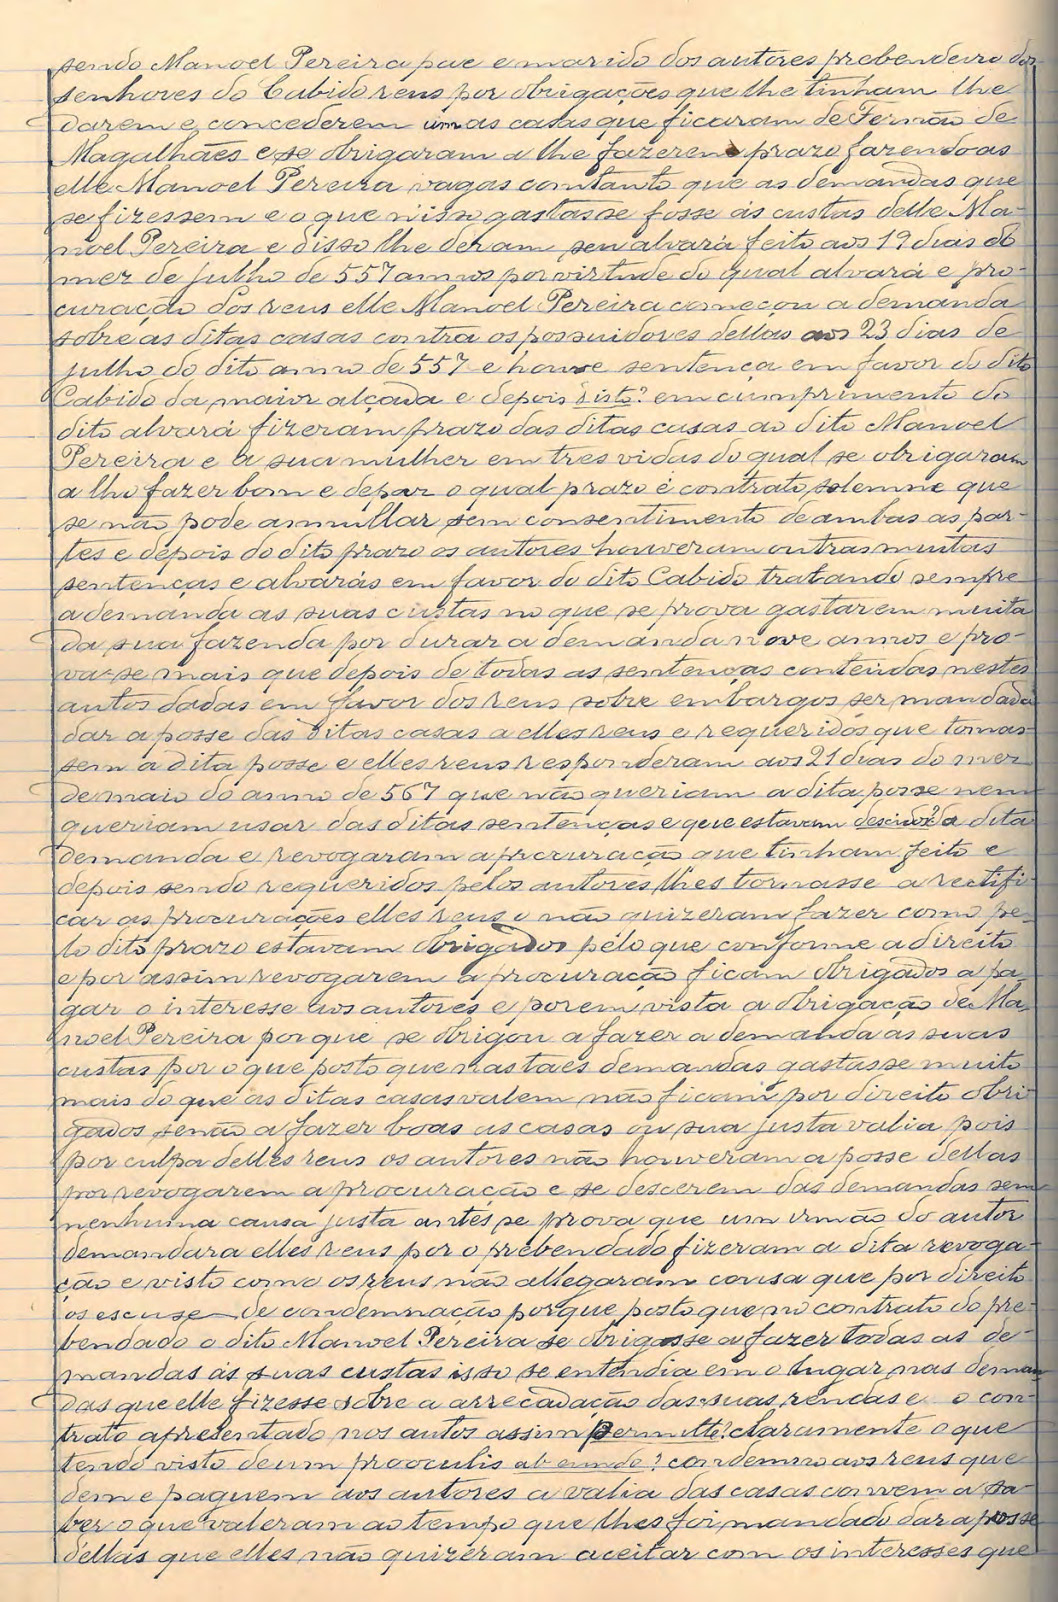 sendo Manoel Pereira pae e marido dos autores prebendeiro dos
senhores do Cabido reus por obrigações que lhe tinham lhe
darem e concederem umas casas que ficaram de Fernão de
Magalhães e se obrigaram a lhe fazerem prazo fazendo as
elle Manoel Pereira vagas comtanto que as demandas que
se fizessem e o que n'isso gastasse fosse ás custas delle Ma-
noel Pereira e disso lhe deram seu alvará feito aos 19 dias do
mez de julho de 557 annos por virtude do qual alvará e pro-
curação dos reus elle Manoel Pereira começou a demanda
sobre as ditas casas contra os possuidores dellas aos 23 dias de
julho do dito anno de 557 e houve sentença em favor do dito
Cabido da maior alçada e depois disto? em cumprimento do
dito alvará fizeram prazo das ditas casas ao dito Manoel
Pereira e a sua mulher em tres vidas do qual se obrigaram
a lho fazer bom e de par o qual prazo é contrato solemne que
se não pode annullar sem consentimento de ambas as par-
tes e depois do dito prazo os autores houveram outras muitas
sentenças e alvarás em favor do dito Cabido tratando sempre
a demanda as suas custas no que se prova gastarem muita
da sua fazenda por durar a demanda nove annos e pro-
va-se mais que depois de todas as sentenças contendas nestes
autos dadas em favor dos reus sobre embargos ser mandada
dar a posse das ditas casas a elles reus e requeridos que tomas-
sem a dita posse e elles reus responderam aos 21 dias do mez
de maio do anno de 567 que não queriam a dita posse nem
queriam usar das ditas sentenças e que estavam da dita
demanda e revogaram a procuração que tinham feito e
depois sendo requeridos pelos autores lhes tornasse a rectifi-
car as procurações elles reus o não quizeram fazer como pe-
lo dito prazo estavam obrigados pelo que conforme a direito
e por assim revogarem a procuração ficam obrigados a pa-
gar o interesse aos autores e porem vista a obrigação de Ma-
noel Pereira porque se obrigou a fazer a demanda as suas
custas por o que posto que nas taes demandas gastasse muito
mais do que as ditas casas valem não ficam por direito obri-
gados senão a fazer boas as casas ou sua justa valia pois
por culpa delles reus os autores não houveram a posse dellas
por revogarem a procuração e se descerem das demandas sem
nenhuma causa justa antes se prova que um irmão do autor
demandara elles reus por o prebendado fizeram a dita revoga-
ção e visto como os reus não allegaram cousa que por direito
os escuse de condemnação porque posto que no contrato do pre-
bendado o dito Manoel Pereira se obrigasse a fazer todas as de-
mandas ás suas custas isso se entendia em o lugar nas deman-
das que elle fizesse sobre a arrecadação das suas rendas e o con-
trato apresentado nos autos assim permitte? claramente o que
tendo visto de um pro oculis ab eundo? condemno aos reus que
dem e paguem aos autores a valia das casas convem a sa-
ber o que valeram ao tempo que lhes foi mandado dar a posse
dellas que elles não quizeram aceitar com os interesses que